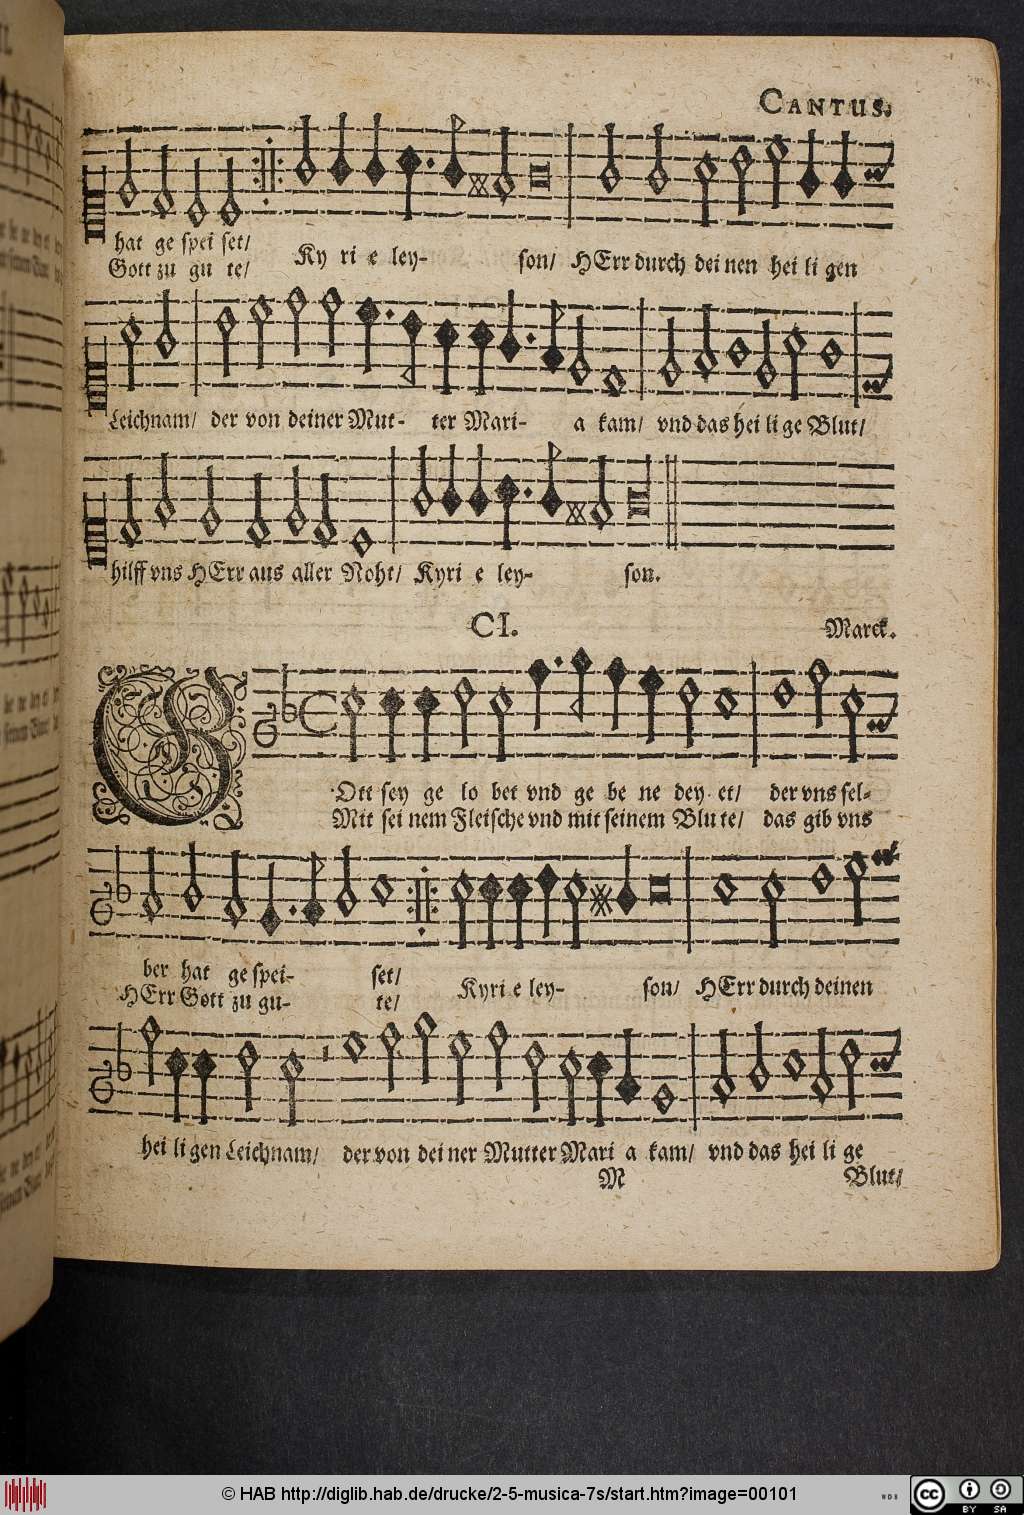 CANTUS.
hat ge spei set/ Ky ri e ley- son/ HErr durch dei nen hei li gen
Gott zu gu te/
Leichnam/ der von deiner Mut- ter Mari- a kam/ vnd das hei li ge Blut/
hilff vns HErr aus aller Noht/ Kyri e ley- son.
CI. Marck.
GOtt sey ge lo bet vnd ge be ne dey et/ der vns sel-
Mit sei nem Fleische vnd mit seinem Blu te/ das gib vns
ber hat ge spei- set/ Kyri e ley- son/ HErr durch deinen
HErr Gott zu gu- te/
hei li gen Leichnam/ der von dei ner Mutter Mari a kam/ vnd das hei li ge
M Blut/
© HAB http://diglib.hab.de/drucke/2-5-musica-7s/start.htm?image=00101
cc BY SA